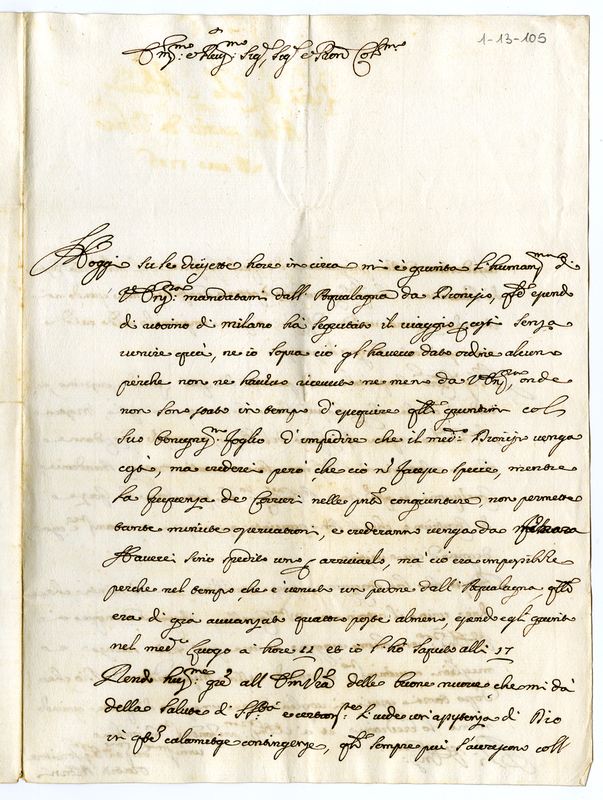 1-13-105
Em.mo e Rev.mo Sig.r Sig.r e Pron Col.mo
Hoggi su le diciesette hore in circa mi è giunta l'human.ma di
V. Em.za mandatami dall' Aqualagna da
di di milano hà seguitato il viaggio costì senza
venire quà, ne io sopra ciò gl' havevo dato ordine alcuno
perche non ne havevo ricevuto ne meno da V. Em.za, onde
non son stato in tempo d'esequire col
suo benignis.mo foglio d'impedire che il med.o venga
costì, ma crederei però che ciò n facesse specie, mentre
la frequenza de Corrieri nelle congiunture non permette
tante minute osservationi, e crederanno venga da
Haverei spedito uno p arrivarlo, ma ciò era impossibile
perche nel tempo che è venuto un pedone dall' Aqualagna
era di già avvanzato quattro poste almeno, essendo egli giunto
nel med.o luogo a hore 11 et io l'hò saputo alli 17
Rendo hum.me gre all' Em. V.ra delle buone nuove che mi dà
della salute di e si vede un' assistenza di Dio
in contingenze, sempre più coll